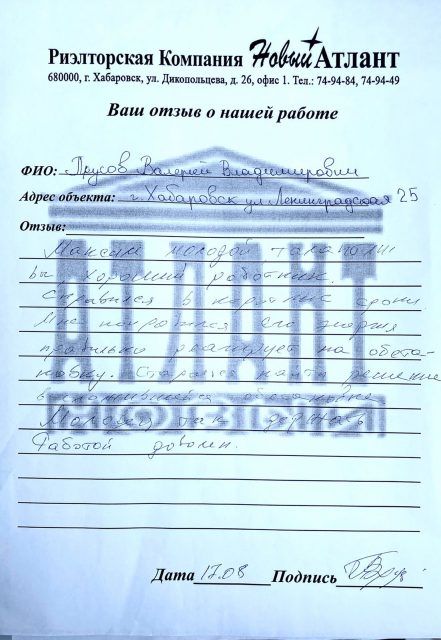 Риэлторская Компания Новый Атлант
680000, г. Хабаровск, ул. Дикопольцева, д. 26, офис 1. Тел.: 74-94-84, 74-94-49
Ваш отзыв о нашей работе
ФИО: Прусов Валерий Владимирович
Адрес объекта: г. Хабаровск ул. Ленинградская 25
Отзыв:
Максим молодой талантли
вы, хороший работник.
Справился в короткие сроки
Мне понравился его энергия
правильно реагирует на обста-
новку. Старался найти решение
в сложившейся обстановке
Молодец так держать
Работой доволен.
АТЛАНТ
Дата 17.08 Подпись